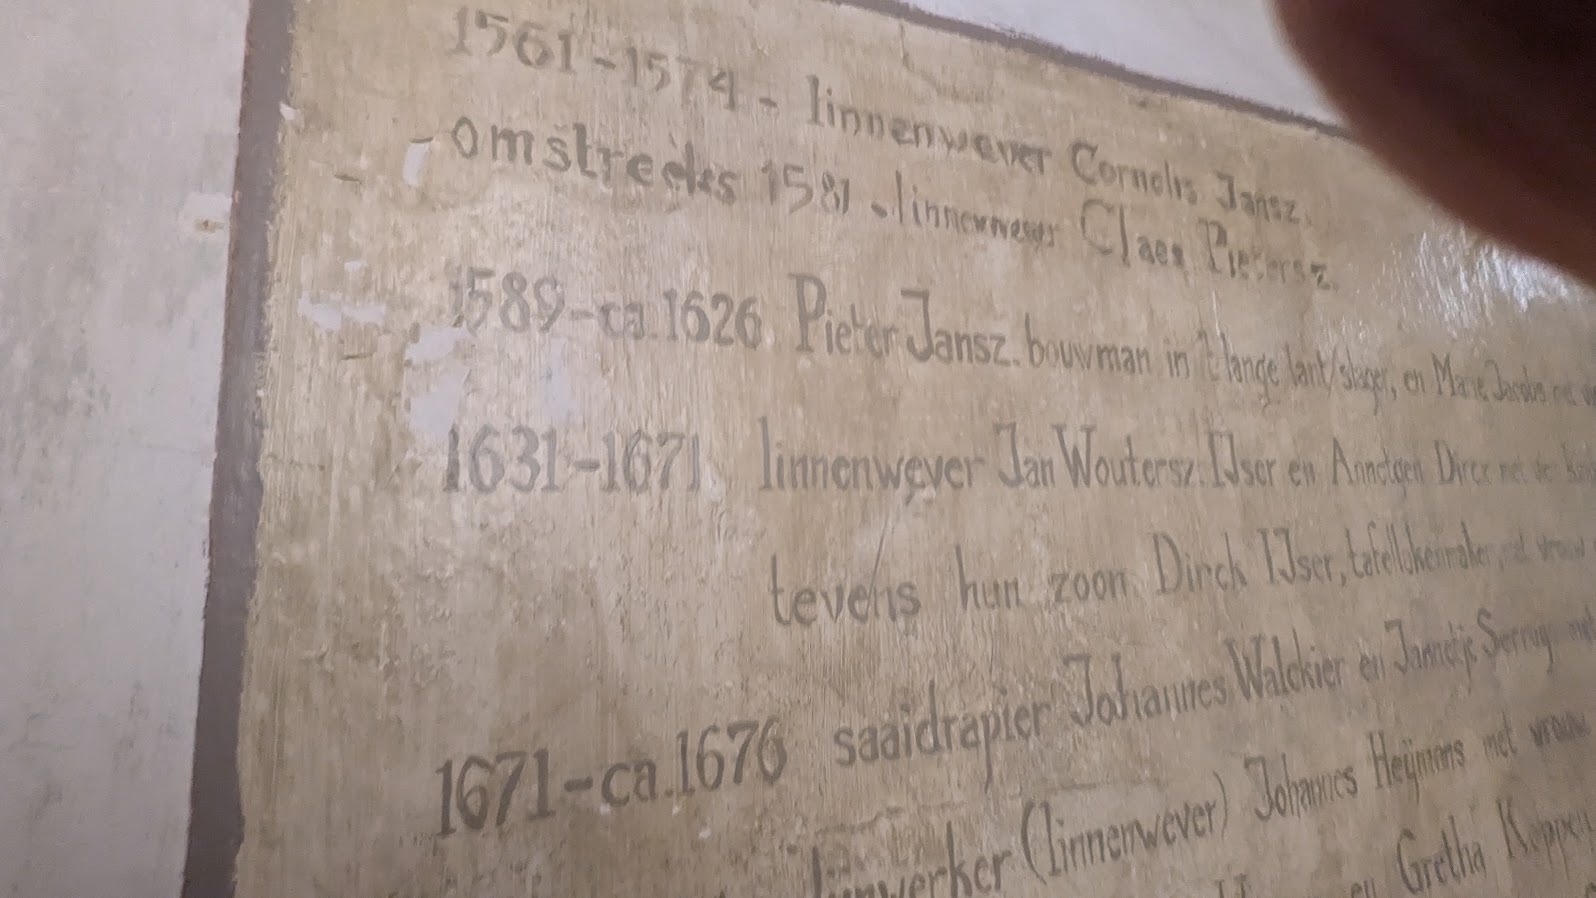 1561-1574 - linnenwever Cornelis Jansz.
- omstreeks 1581 - linnenwever Claes Pietersz.
1589-ca.1626 Pieter Jansz. bouwman in 't lange lant/slager, en Marie Jacobs
1631-1671 linnenwever Jan Woutersz. IJser en Annetgen Dircx met de
tevens hun zoon Dirck IJser, tafellakenwerker, met vrouw
1671-ca.1676 saaidrapier Johannes Walckier en Jannetje Serruy met
(linnenwever) Johannes Heijmans met vrouw
en Gretha